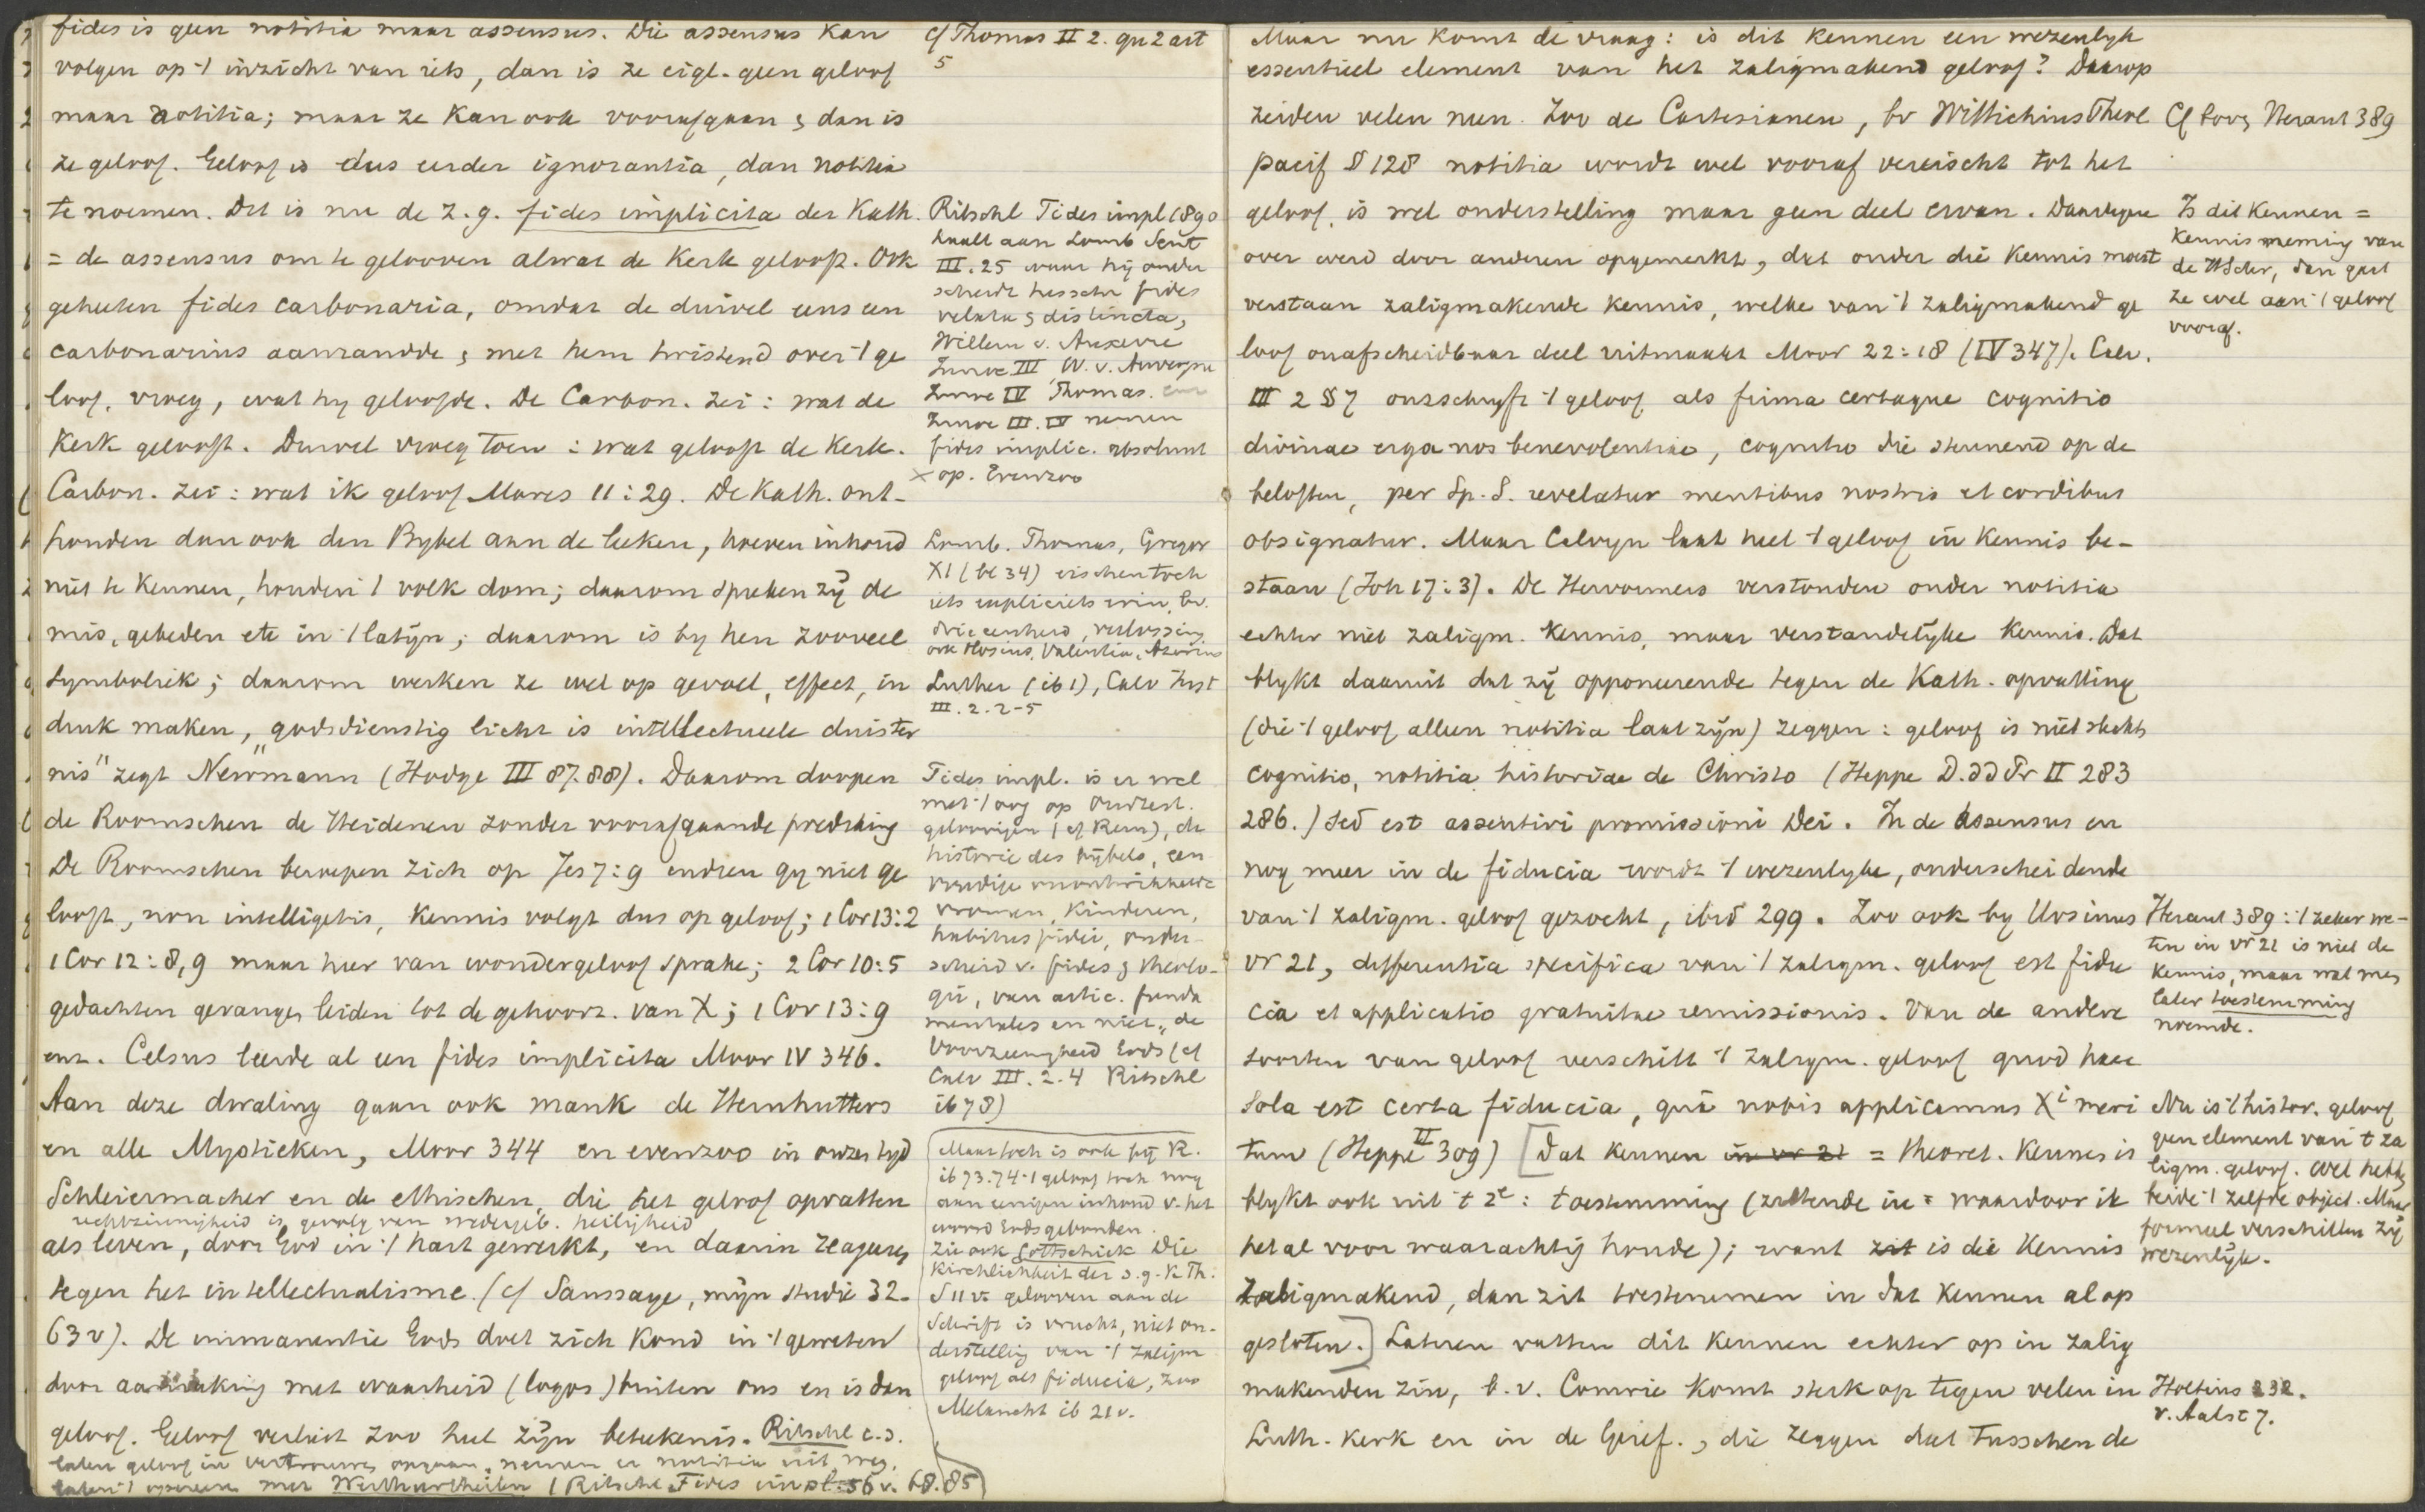 fides is geen notitia maar assensus. Die assensus kan
volgen op 't inzicht van iets, dan is ze eigl. geen geloof
maar notitia; maar ze kan ook voorafgaan & dan is
ze geloof. Geloof is dus eerder ignorantia, dan notitia
te noemen. Dit is nu de z.g. fides implicita der Kath.
= de assensus om te gelooven alwat de Kerk gelooft. Ook
geheeten fides carbonaria, omdat de duivel eens een
carbonarius aanrandde & met hem twistend over 't ge
loof, vroeg, wat hy geloofde. De Carbon. zei: wat de
Kerk gelooft. Duivel vroeg toen: wat gelooft de Kerk.
Carbon. zei: wat ik geloof Mares 11:29. De Kath. ont-
houden dan ook den Bybel aan de leeken, hoeven inhoud
niet te kennen, houden 't volk dom; daarom spreken zij de
mis, gebeden etc in 't latijn; daarom is by hen zooveel
symboliek; daarom werken ze wel op gevoel, effect, in
druk maken, "godsdienstig licht is intellectueele duister
nis" zegt Newmann (Hodge III 87.88). Daarom doopen
de Roomschen de Heidenen zonder voorafgaande prediking
De Roomschen beroepen zich op Jes 7:9 indien gy niet ge
looft, non intelligetis, kennis volgt dus op geloof; 1 Cor 13:2
1 Cor 12:8,9 maar hier van wondergeloof sprake; 2 Cor 10:5
gedachten gevangen leiden tot de gehoorz. van X; 1 Cor 13:9
enz. Celsus leerde al een fides implicita Moor IV 346.
Aan deze dwaling gaan ook mank de Hernhutters
en alle Mystieken, Moor 344 en evenzoo in onzen tyd
Schleiermacher en de ethischen, die het geloof opvatten
rechtzinnigheid is gevolg van wedergeb. heiligheid
als leven, door God in 't hart gewerkt, en daarin reageeren
tegen het intellectualisme. (cf Saussaye, mijn studie 32.
63v). De immanentie Gods doet zich kond in 't geweten
door aanraking met waarheid (logos) buiten ons en is dan
geloof. Geloof verliest zoo heel zijn beteekenis. Ritschl c.s.
laten geloof in vertrouwen opgaan, nemen er notitia uit weg,
laten 't opereeren met Werthurtheilen (Ritschl Fides impl. 56v. 68.85)
cf Thomas II 2. qu 2 art
5
Ritschl Fides impl 1890
haalt aan Lomb Sent
III. 25 waar hij onder
scheidt tusschen fides
velata & distincta,
Willem v. Auxerre
Innoc III, W. v. Auvergne
Innoc IV Thomas.
Innoc III. IV nemen
fides implic. absoluut
× op. Evenzoo
Lomb. Thomas, Gregor
XI (bl 34) eischen toch
iets expliciets erin, bv.
drieeenheid, verlossing
ook Hosius, Valentia, Azorius
Luther (ib 1), Calv Inst
III. 2. 2-5
Fides impl. is er wel
met 't oog op Oudtest.
geloovigen (cf Rem), de
historie des bijbels, een
voudige onontwikkelde
vromen, kinderen,
habitus fidei, onder-
scheid v. fides & theolo-
gie, van artic. funda
mentales en niet, de
Voorzienigheid Gods (cf
Calv III. 2. 4 Ritschl
ib 78)
Maar toch is ook bij R.
ib 73.74 't geloof toch nog
aan eenigen inhoud v. het
woord Gods gebonden.
Zie ook Gottschick Die
Kirchlichkeit der s.g. K Th.
S 11 v. gelooven aan de
Schrift is vrucht, niet on-
derstelling van 't zaligm
geloof als fiducia, zoo
Melancht ib 21v.
Maar nu komt de vraag: is dit kennen een wezenlyk
essentieel element van het zaligmakend geloof? Daarop
zeiden velen neen. Zoo de Cartesianen, bv Wittichius Theol
pacif § 128 notitia wordt wel vooraf vereischt tot het
geloof, is wel onderstelling maar geen deel ervan. Daartegen
over werd door anderen opgemerkt, dat onder die kennis moest
verstaan zaligmakende kennis, welke van 't zaligmakend ge
loof onafscheidbaar deel uitmaakt Moor 22:18 (IV 347). Calv.
III 2 § 7 omschrijft 't geloof als firma certaque cognitio
divinae erga nos benevolentiae, cognitio die steunend op de
beloften, per Sp. S. revelatur mentibus nostris et cordibus
obsignatur. Maar Calvyn laat heel 't geloof in kennis be-
staan (Joh 17:3). De Hervormers verstonden onder notitia
echter niet zaligm. kennis, maar verstandelijke kennis. Dat
blykt daaruit dat zij opponeerende tegen de Kath. opvatting
(die 't geloof alleen notitia laat zijn) zeggen: geloof is niet slechts
cognitio, notitia historiae de Christo (Heppe D. dd Pr II 283
286.) sed est assentiri promissioni Dei. In de assensus en
nog meer in de fiducia wordt 't wezenlyke, onderscheidende
van 't zaligm. geloof gezocht, ibid 299. Zoo ook by Ursinus
vr 21, differentia specifica van 't zaligm. geloof est fidu
cia et applicatio gratuitae remissionis. Van de andere
soorten van geloof verschilt 't zaligm. geloof quod haec
sola est certa fiducia, quâ nobis applicamus Xi meri
tum (Heppe II 309) [Dat kennen in vr 21 = theoret. kennis is
blykt ook uit 't 2e: toestemming (zettende in = waardoor ik
het al voor waarachtig houde); want zit is die kennis
zaligmakend, dan zit toestemmen in dat kennen al op
gesloten.] Lateren vatten dit kennen echter op in zalig
makenden zin, b.v. Comrie komt sterk op tegen velen in
Luth. kerk en in de Geref., die zeggen dat tusschen de
Cf Corn Heraut 389
Is dit kennen =
kennisneming van
de HSchr, dan gaat
ze wel aan 't geloof
vooraf.
Heraut 389: 't zeker we-
ten in vr 21 is niet de
kennis, maar wat men
later toestemming
noemde.
Nu is 't histor. geloof
geen element van 't za
ligm. geloof. Wel hebben
beide 't zelfde object. Maar
formeel verschillen zij
wezenlijk.
Holtius 232.
v. Aalst 7.